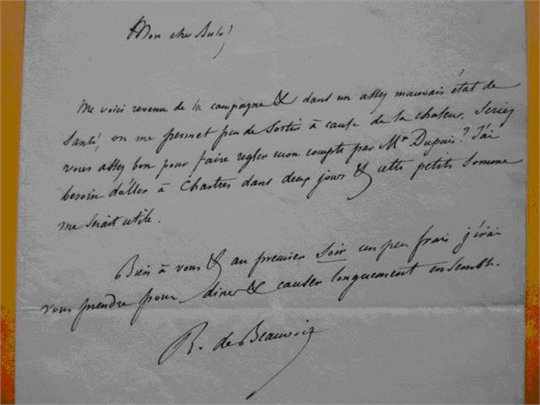 Mon cher
me voici revenu de la campagne & dans un assez mauvais état de
santé, on me permet peu de sortir à cause de la chaleur. Seriez
vous assez bon pour faire regler mon compte par Mr Dupuis? J'ai
besoin d'aller à Chartres dans deux jours & cette petite somme
me serait utile.
Bien à vous & au premier soir un peu frais j'irai
vous prendre pour diner & causer longuement ensemble.
R. de Beauvoir